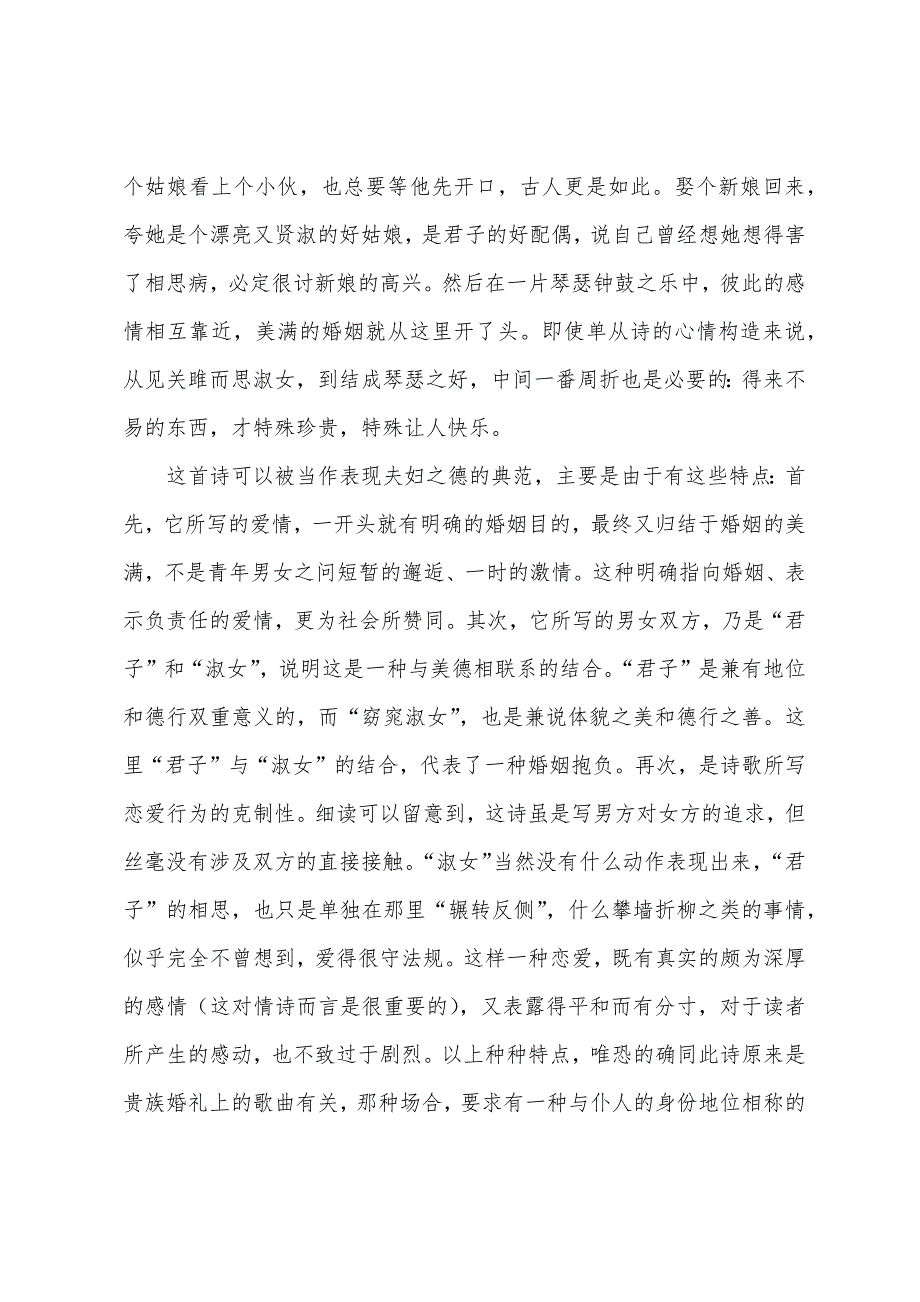 个姑娘看上个小伙，也总要等他先开口，古人更是如此。娶个新娘回来，
夸她是个漂亮又贤淑的好姑娘，是君子的好配偶，说自己曾经想她想得害
了相思病，必定很讨新娘的高兴。然后在一片琴瑟钟鼓之乐中，彼此的感
情相互靠近，美满的婚姻就从这里开了头。即使单从诗的心情构造来说，
从见关雎而思淑女，到结成琴瑟之好，中间一番周折也是必要的：得来不
易的东西，才特殊珍贵，特殊让人快乐。
这首诗可以被当作表现夫妇之德的典范，主要是由于有这些特点：首
先，它所写的爱情，一开头就有明确的婚姻目的，最终又归结于婚姻的美
满，不是青年男女之问短暂的邂逅、一时的激情。这种明确指向婚姻、表
示负责任的爱情，更为社会所赞同。其次，它所写的男女双方，乃是“君
子”和“淑女”，说明这是一种与美德相联系的结合。“君子”是兼有地位
和德行双重意义的，而“窈窕淑女”，也是兼说体貌之美和德行之善。这
里“君子”与“淑女”的结合，代表了一种婚姻抱负。再次，是诗歌所写
恋爱行为的克制性。细读可以留意到，这诗虽是写男方对女方的追求，但
丝毫没有涉及双方的直接接触。“淑女”当然没有什么动作表现出来，“君
子”的相思，也只是单独在那里“辗转反侧”，什么攀墙折柳之类的事情，
似乎完全不曾想到，爱得很守法规。这样一种恋爱，既有真实的颇为深厚
的感情（这对情诗而言是很重要的），又表露得平和而有分寸，对于读者
所产生的感动，也不致过于剧烈。以上种种特点，唯恐的确同此诗原来是
贵族婚礼上的歌曲有关，那种场合，要求有一种与仆人的身份地位相称的